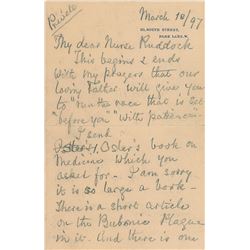 Private
March 10/97
SOUTH STREET,
PARK LANE. W.
My dear Nurse Ruddock
This begins & ends
with my prayers that our
loving Father will give you
to "run the race that is set
before you" with patience.
I send
Osler's book on
Medicine which you
asked for. I am sorry
it is so large a book
There is a short Article
on the Bubonic Plague
in it. And there is one